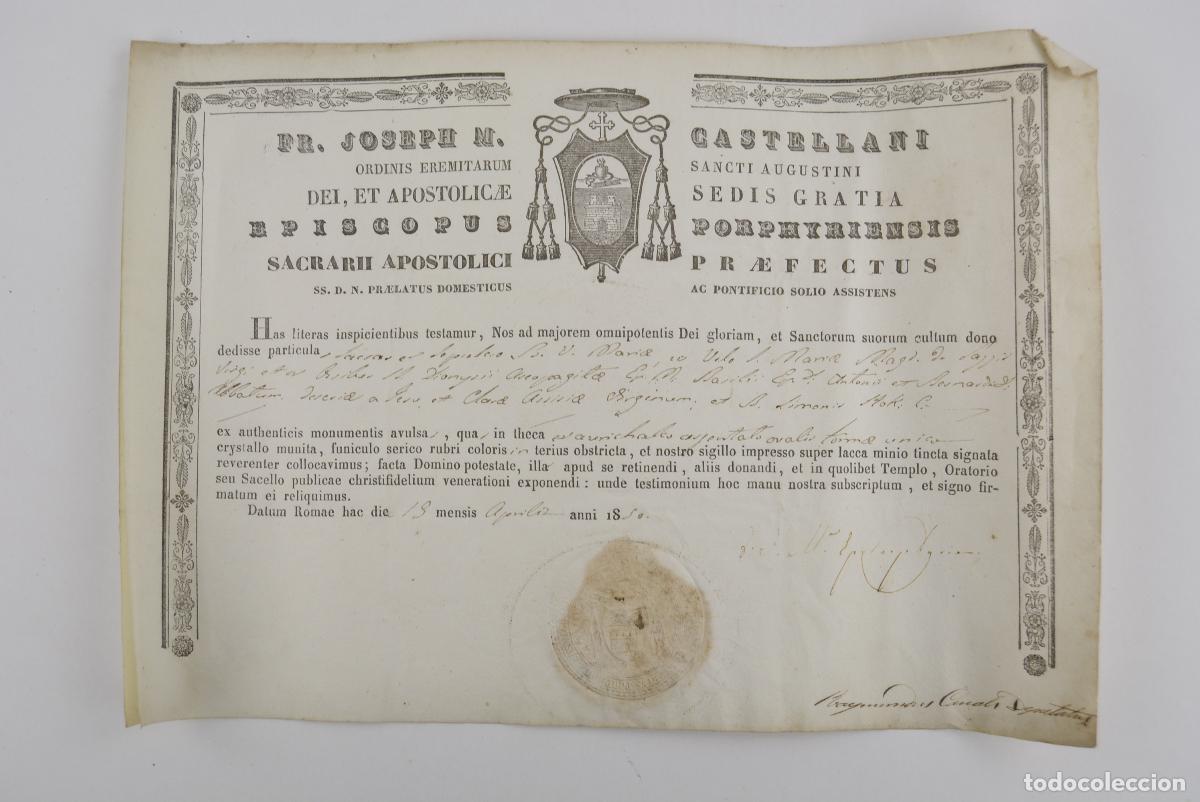 FR. JOSEPH M. CASTELLANI
ORDINIS EREMITARUM SANCTI AUGUSTINI
DEI, ET APOSTOLICÆ SEDIS GRATIA
EPISCOPUS PORPHYRIENSIS
SACRARII APOSTOLICI PRÆFECTUS
SS. D. N. PRÆLATUS DOMESTICUS AC PONTIFICIO SOLIO ASSISTENS
Has literas inspicientibus testamur, Nos ad majorem omnipotentis Dei gloriam, et Sanctorum suorum cultum dono
dedisse particulas ex sepulcro B. V. Mariæ, ex Velo S. Mariæ Magd. de Pazzis
Virg. et ex Ossibus SS. Dionysii Areopagitæ Ep. M. Basilii Ep. D. Antonii et Bernardi
Abbatum, Teresiæ a Jesu, et Claræ Assisiæ Virginum, et B. Simonis Stok. C.
ex authenticis monumentis avulsas, quas in theca ex aurichalco argentato ovalis formæ unico
crystallo munita, funiculo serico rubri coloris in terius obstricta, et nostro sigillo impresso super lacca minio tincta signata
reverenter collocavimus; facta Domino potestate, illa apud se retinendi, aliis donandi, et in quolibet Templo, Oratorio
seu Sacello publicae christifidelium venerationi exponendi: unde testimonium hoc manu nostra subscriptum, et signo fir-
matum ei reliquimus.
Datum Romae hac die 18 mensis Aprilis anni 1850.
Raymundus Deputatus
todocoleccion